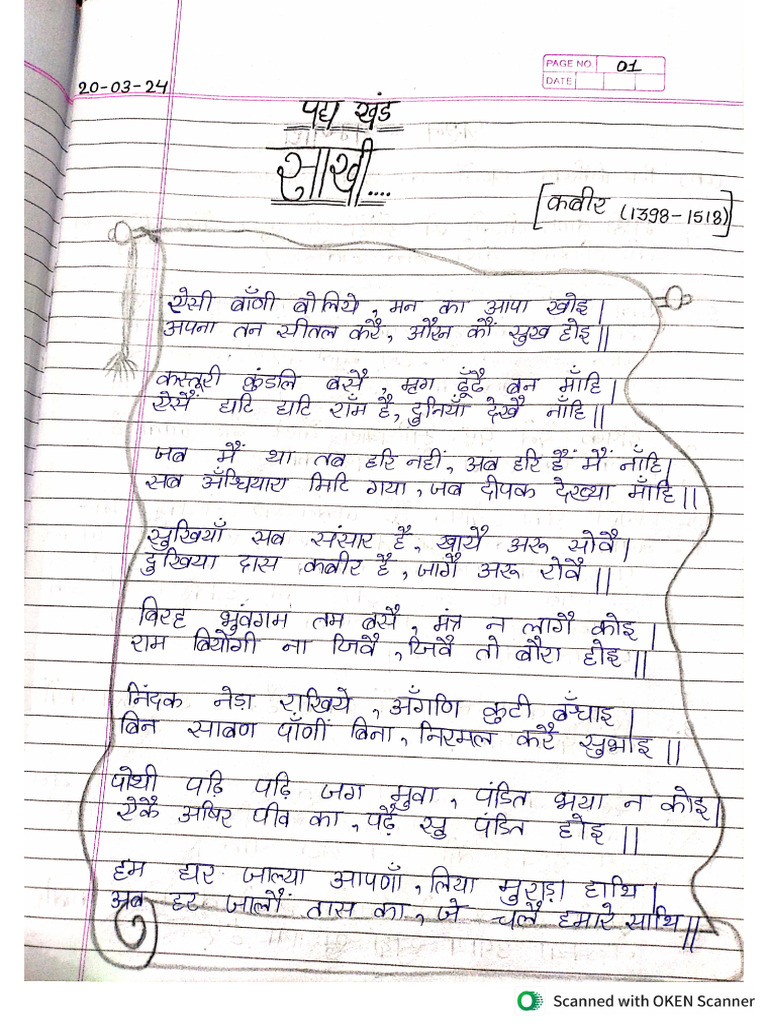 PAGE NO 01
DATE
20-03-24
पद्य खंड
साखी....
[कबीर (1398-1518)]
ऐसी बाँणी बोलिये, मन का आपा खोइ |
अपना तन सीतल करै, औरन कौं सुख होइ ||
कस्तूरी कुंडलि बसै, मृग ढूँढै बन माँहि |
ऐसैं घटि घटि राँम है, दुनियाँ देखै नाँहि ||
जब मैं था तब हरि नहीं, अब हरि हैं मैं नाँहि |
सब अँधियारा मिटि गया, जब दीपक देख्या माँहि ||
सुखियाँ सब संसार है, खायै अरू सोवै |
दुखिया दास कबीर है, जागै अरू रोवै ||
बिरह भुंवगम तम बसै, मंत्र न लागै कोइ |
राम बियोगी ना जिवै, जिवै तो बौरा होइ ||
निंदक नेड़ा राखिये, अँगणि कुटी बँधाइ |
बिन साबण पाँणीं बिना, निरमल करै सुभाइ ||
पोथी पढ़ि पढ़ि जग मुवा, पंडित भया न कोइ |
ऐकै अषिर पीव का, पढ़ै सु पंडित होइ ||
हम घर जाल्या आपणाँ, लिया मुराड़ा हाथि |
अब घर जालौं तास का, जे चलै हमारे साथि ||
Scanned with OKEN Scanner